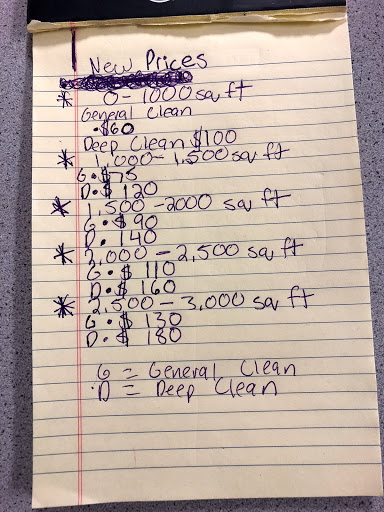 New Prices
* 0-1000 sq ft
General Clean
• $60
Deep Clean $100
* 1,000-1,500 sq ft
G • $75
D • $120
* 1,500-2000 sq ft
G • $90
D. 140
* 2,000-2,500 sq ft
G • $110
D • $160
* 2,500-3,000 sq ft
G • $130
D • $180
G = General Clean
•D = Deep Clean